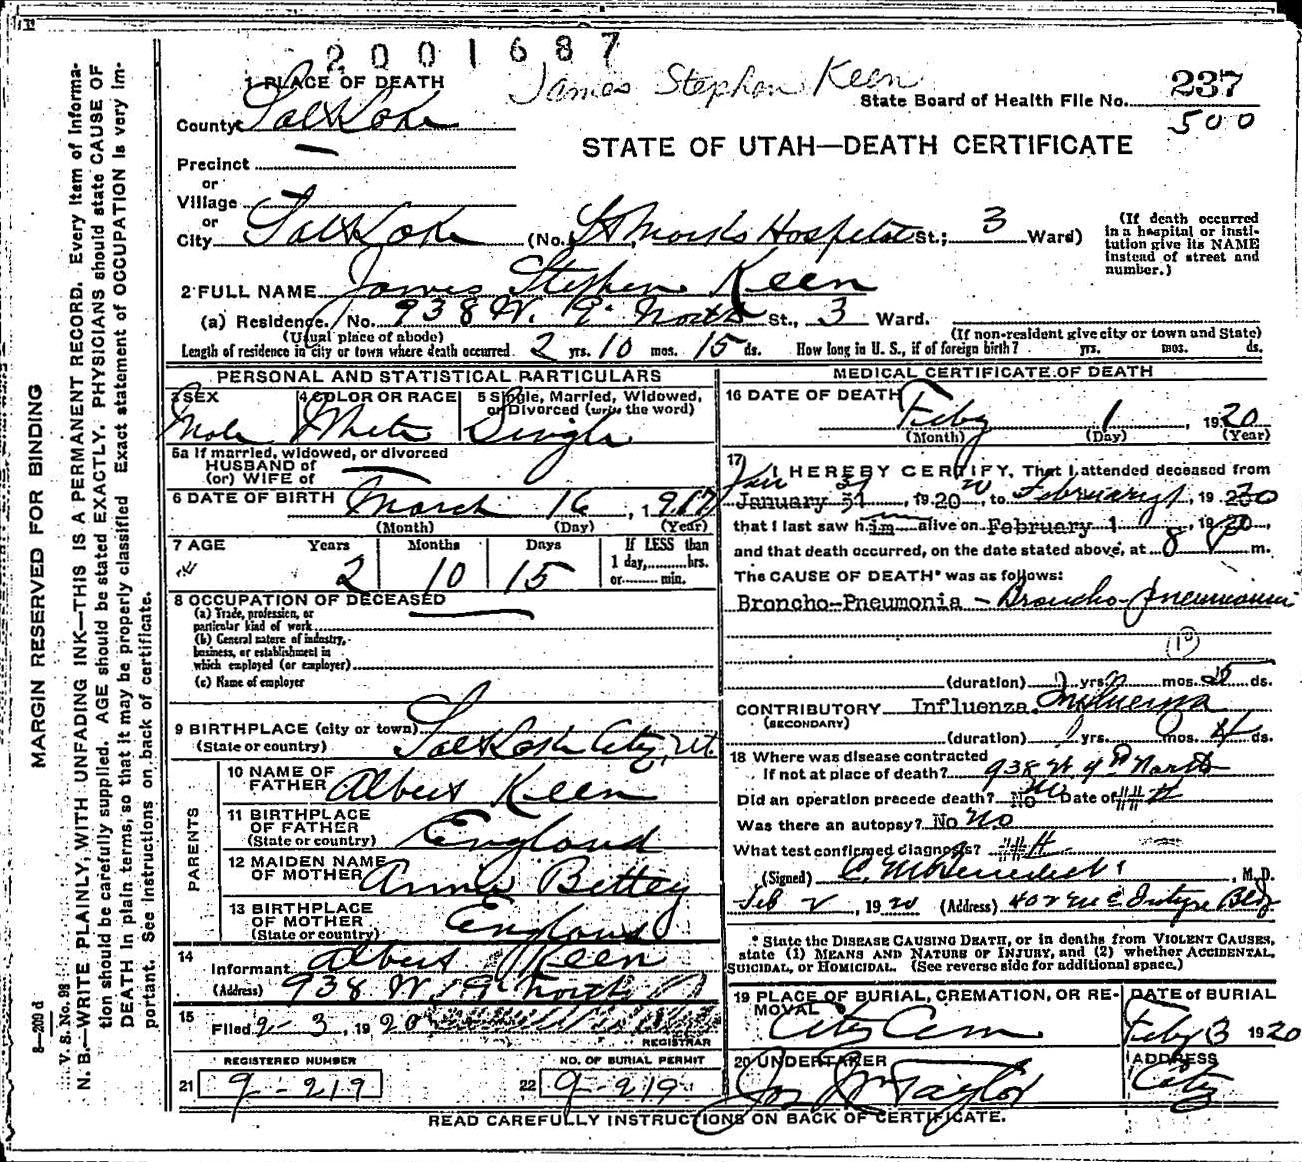 2001687
James Stephen Keen
237
State Board of Health File No.
500
1 PLACE OF DEATH
County Salt Lake
STATE OF UTAH—DEATH CERTIFICATE
Precinct —
or
Village —
or
City Salt Lake (No. St Marks Hospital St.; 3 Ward)
(If death occurred in a hospital or institution give its NAME instead of street and number.)
2 FULL NAME James Stephen Keen
(a) Residence. No. 938 W. North St., 3 Ward.
(Usual place of abode) (If non-resident give city or town and State)
Length of residence in city or town where death occurred 2 yrs. 10 mos. 15 ds. How long in U. S., if of foreign birth? yrs. mos. ds.
PERSONAL AND STATISTICAL PARTICULARS
3 SEX Male
4 COLOR OR RACE White
5 Single, Married, Widowed, or Divorced (write the word) Single
5a If married, widowed, or divorced
HUSBAND of
(or) WIFE of —
6 DATE OF BIRTH March 16, 1917
(Month) (Day) (Year)
7 AGE Years Months Days If LESS than
1 day,....hrs.
or....min.
2 10 15
8 OCCUPATION OF DECEASED —
(a) Trade, profession, or
particular kind of work
(b) General nature of industry,
business, or establishment in
which employed (or employer)
(c) Name of employer
9 BIRTHPLACE (city or town) Salt Lake City, Ut
(State or country)
PARENTS
10 NAME OF FATHER Albert Keen
11 BIRTHPLACE OF FATHER (State or country) England
12 MAIDEN NAME OF MOTHER Annie Bettey
13 BIRTHPLACE OF MOTHER (State or country) England
14 Informant Albert Keen
(Address) 938 W. North
15 Filed 2-3, 1920
REGISTRAR
REGISTERED NUMBER
21 9-219
NO. OF BURIAL PERMIT
22 9-219
MEDICAL CERTIFICATE OF DEATH
16 DATE OF DEATH Feby 1, 1920
(Month) (Day) (Year)
17 I HEREBY CERTIFY, That I attended deceased from
Jan 31
January 31, 1920, to February 1, 1920
that I last saw him alive on February 1, 1920,
and that death occurred, on the date stated above, at 8 m.
The CAUSE OF DEATH* was as follows:
Broncho-Pneumonia - Broncho-pneumonia
(10)
(duration) yrs. mos. ds.
CONTRIBUTORY Influenza Influenza
(SECONDARY)
(duration) yrs. mos. 4 ds.
18 Where was disease contracted
If not at place of death? 938 W North
Did an operation precede death? No no Date of ###
Was there an autopsy? No no
What test confirmed diagnosis? ###
(Signed) , M. D.
Feb 2, 1920 (Address) Bldg
* State the DISEASE CAUSING DEATH, or in deaths from VIOLENT CAUSES,
state (1) MEANS AND NATURE OF INJURY, and (2) whether ACCIDENTAL,
SUICIDAL, or HOMICIDAL. (See reverse side for additional space.)
19 PLACE OF BURIAL, CREMATION, OR REMOVAL City Cem
DATE of BURIAL Feby 3 1920
20 UNDERTAKER Jos Wm Taylor
ADDRESS City
READ CAREFULLY INSTRUCTIONS ON BACK OF CERTIFICATE.
MARGIN RESERVED FOR BINDING
V. S. No. 98
N. B.—WRITE PLAINLY, WITH UNFADING INK—THIS IS A PERMANENT RECORD. Every item of information should be carefully supplied. AGE should be stated EXACTLY. PHYSICIANS should state CAUSE OF DEATH in plain terms, so that it may be properly classified. Exact statement of OCCUPATION is very important. See instructions on back of certificate.